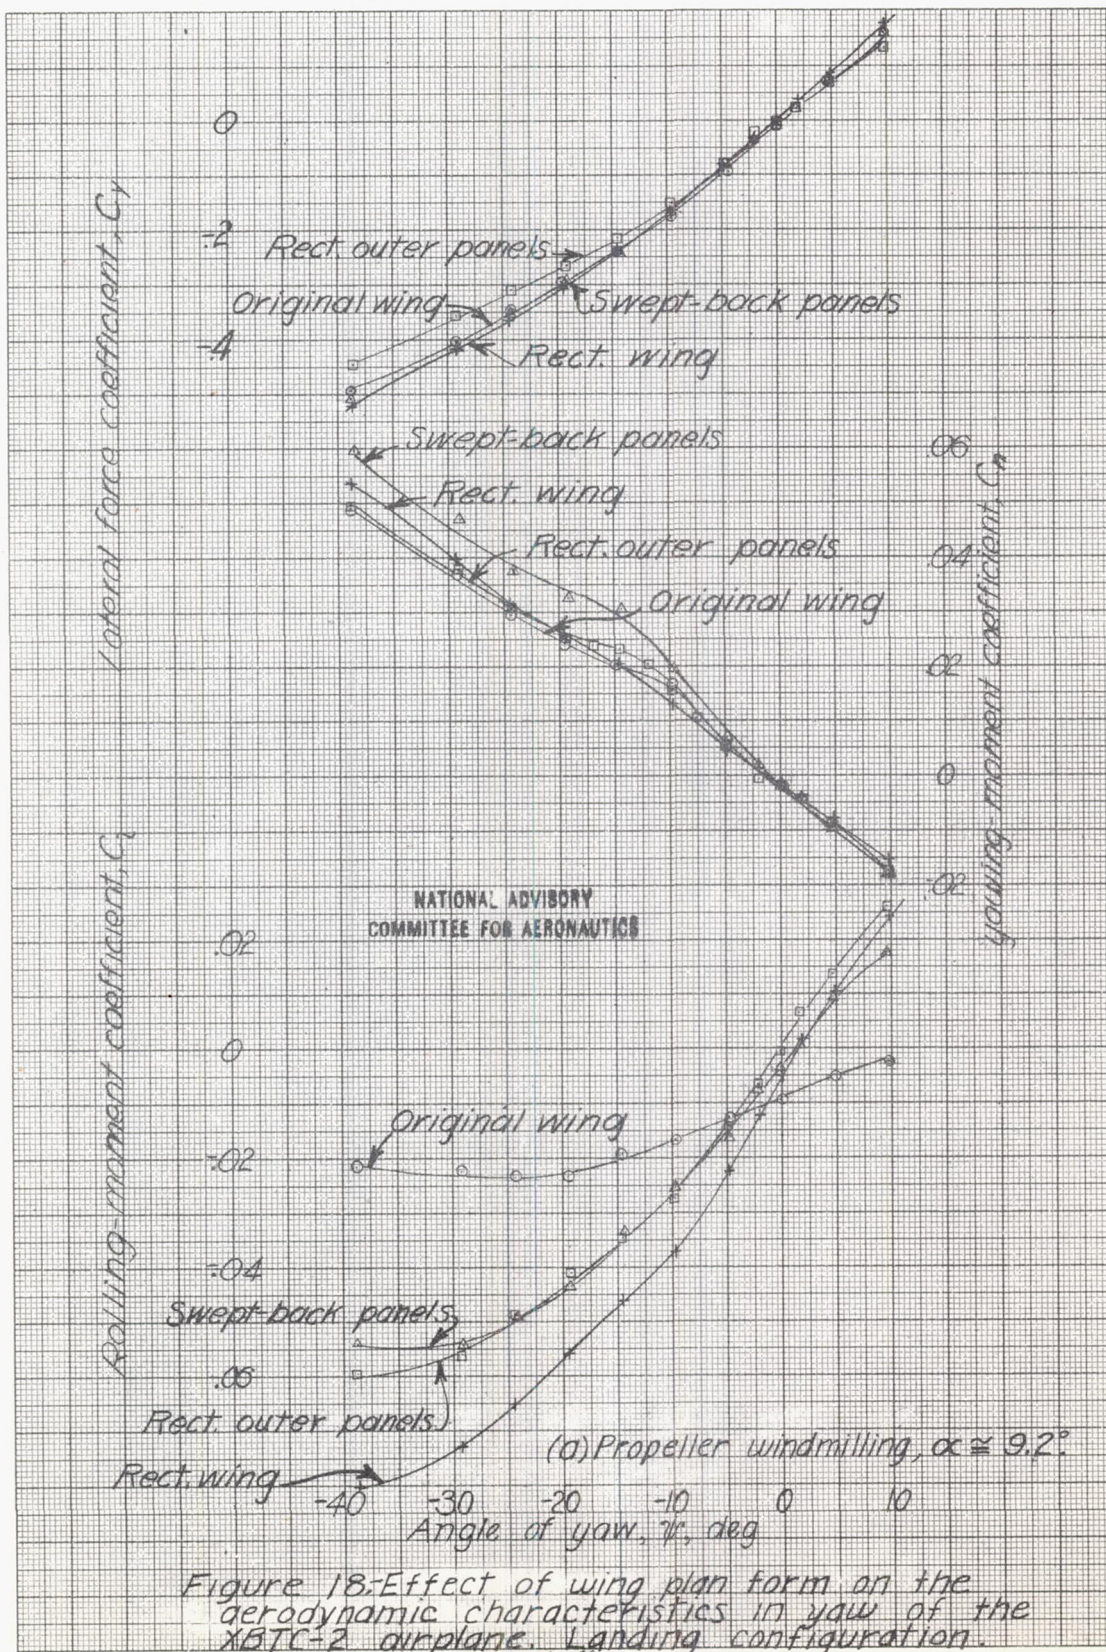 0
-.2
-.4
Lateral force coefficient, Cy
Rect. outer panels
Original wing
Swept-back panels
Rect. wing
Swept-back panels
Rect. wing
Rect. outer panels
Original wing
.06
.04
.02
0
-.02
yawing-moment coefficient, Cn
NATIONAL ADVISORY
COMMITTEE FOR AERONAUTICS
.02
0
-.02
-.04
.06
Rolling-moment coefficient, Cl
Original wing
Swept-back panels
Rect. outer panels
Rect. wing
(a) Propeller windmilling, α ≅ 9.2°.
-40 -30 -20 -10 0 10
Angle of yaw, ψ, deg
Figure 18.-Effect of wing plan form on the
aerodynamic characteristics in yaw of the
XBTC-2 airplane. Landing configuration.